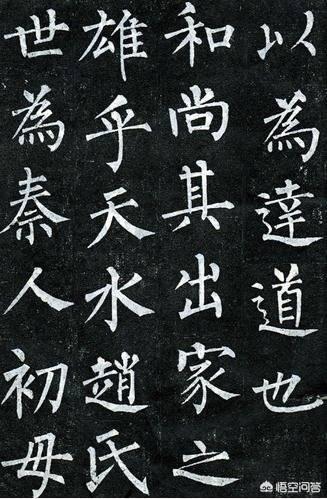 以為達道也
和尚其出家之
雄乎天水趙氏
世為秦人初母
悟空问答